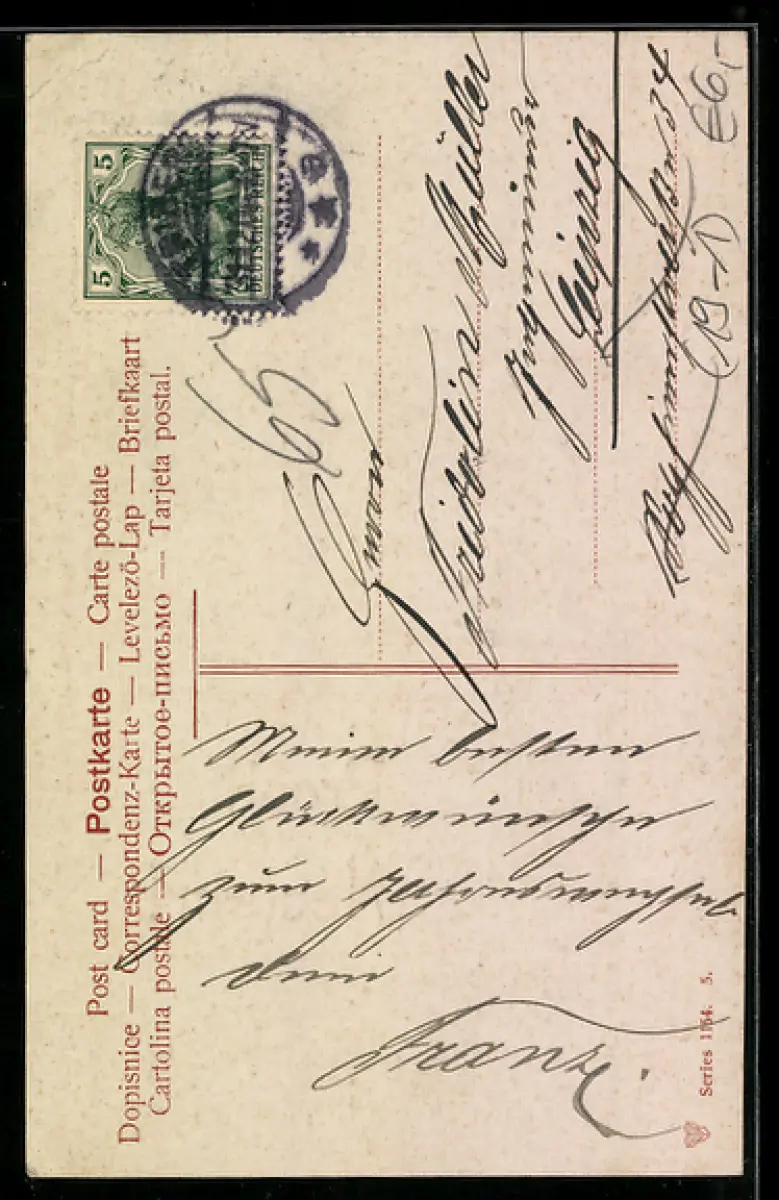 Post card — Postkarte — Carte postale
Dopisnice — Correspondenz-Karte — Levelező-Lap — Briefkaart
Cartolina postale — Открытое-письмо — Tarjeta postal.
5 5
DEUTSCHES REICH
65
Meine besten
Glückwünsche
zum Jahreswechsel
dein
Franz.
Herrn
Fridolin Müller
Leipzig
34
(19-1)
€6,-
Series 1164. 5.